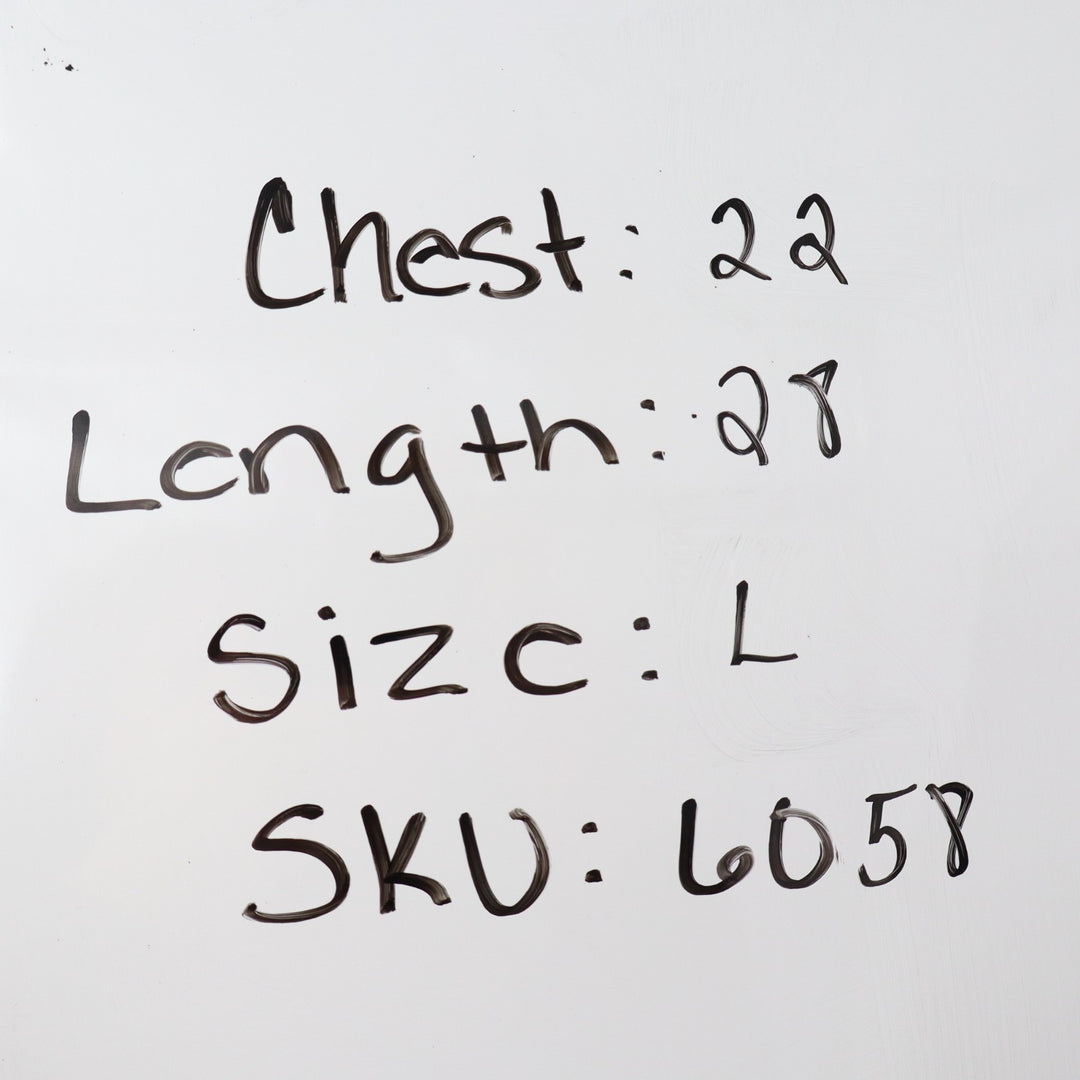 Chest: 22
Length: 28
Size: L
SKU: 6058